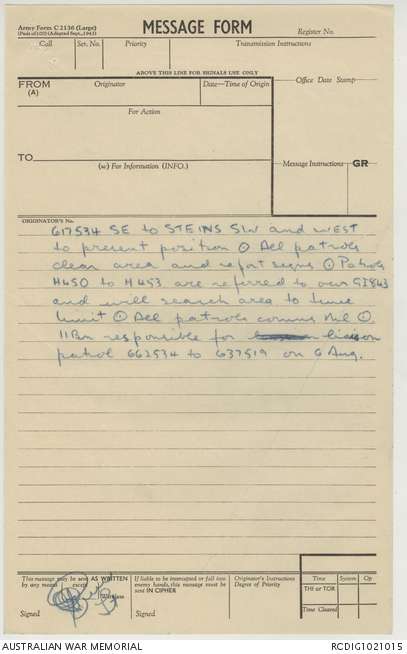 Army Form C 2136 (Large)
(Pads of 100) (Adapted Sept., 1943)
MESSAGE FORM
Register No.
Call
Ser. No.
Priority
Transmission Instructions
ABOVE THIS LINE FOR SIGNALS USE ONLY
FROM
(A)
Originator
Date—Time of Origin
Office Date Stamp
For Action
TO
(w) For Information (INFO.)
Message Instructions
GR
ORIGINATOR'S No.
617534 SE to STEINS SW and WEST
to present position ⊙ All patrols
clear area and report signs ⊙ Patrols
H450 to H453 are referred to our GI843
and will search area to time
limit ⊙ All patrols comms Nil ⊙
11 Bn responsible for liaison
patrol 662534 to 637519 on 6 Aug.
This message may be sent AS WRITTEN
by any means except
Wireless
Signed
If liable to be intercepted or fall into
enemy hands, this message must be
sent IN CIPHER
Signed
Originator's Instructions
Degree of Priority
Time
System
Op
THI or TOR
Time Cleared
AUSTRALIAN WAR MEMORIAL
RCDIG1021015